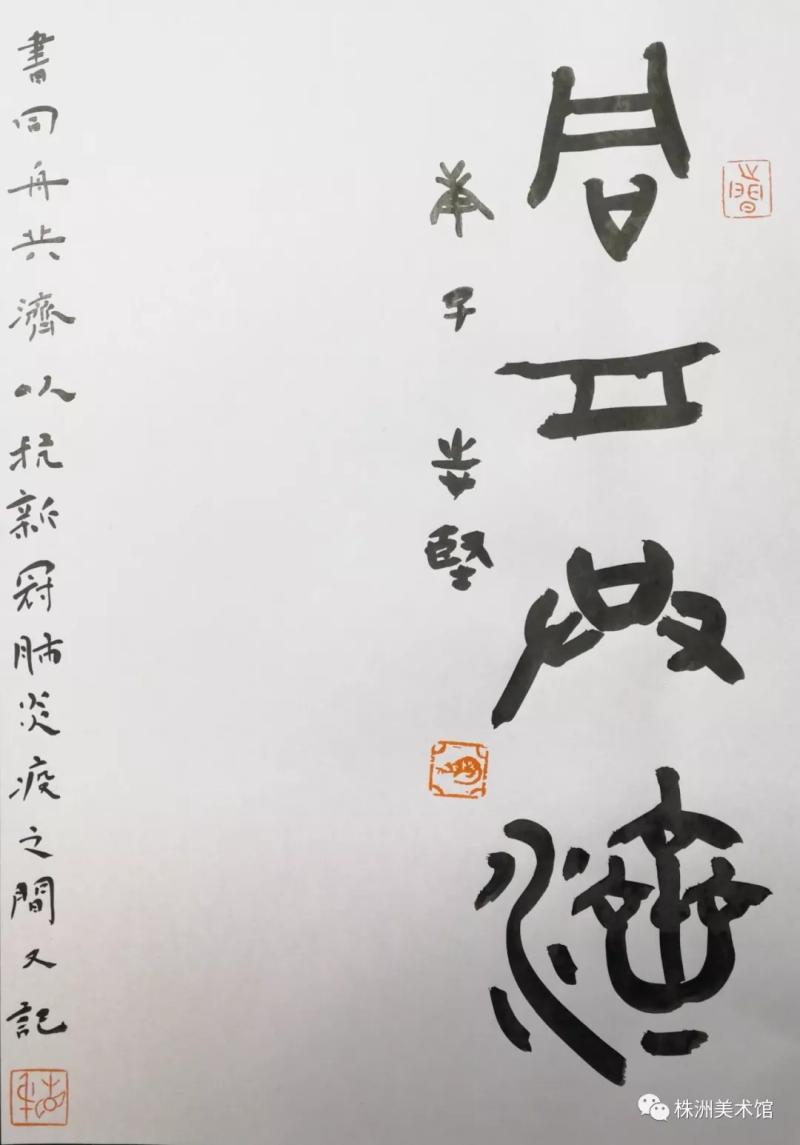 同舟共濟
庚子 堅
書同舟共濟以抗新冠肺炎疫之間又記
株洲美术馆